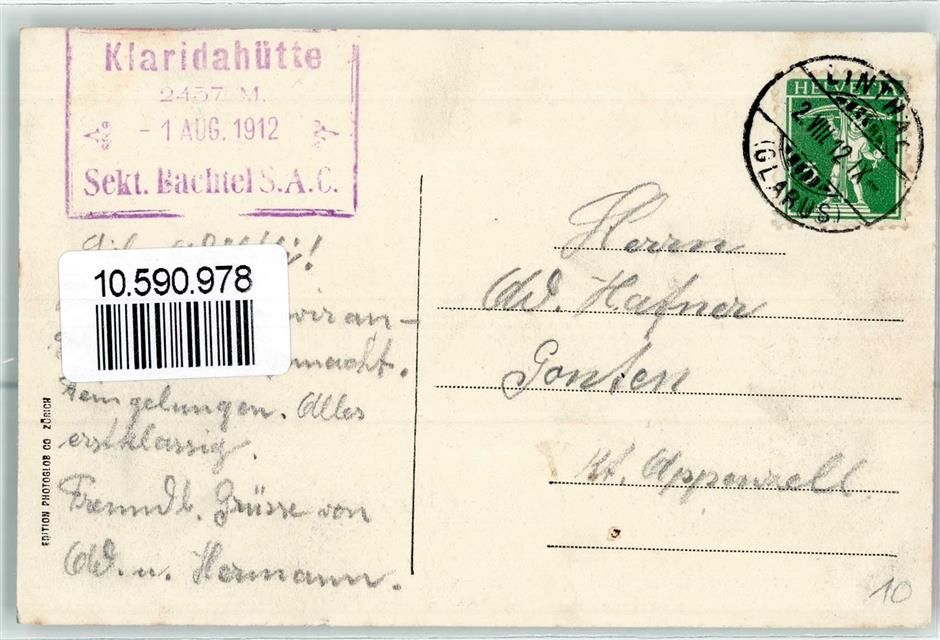 Klaridahütte
2457 M.
- 1 AUG. 1912
Sekt. Bachtel S.A.C.
LINTHAL
2.VIII.12.IX-
(GLARUS)
HELVETIA
10.590.978
wir an-
macht.
gelungen. Alles
erstklassig.
Freundl. Grüsse von
Ad. u. Hermann.
EDITION PHOTOGLOB CO ZÜRICH
Herrn
Ad. Hafner
Gonten
Kt. Appenzell
10